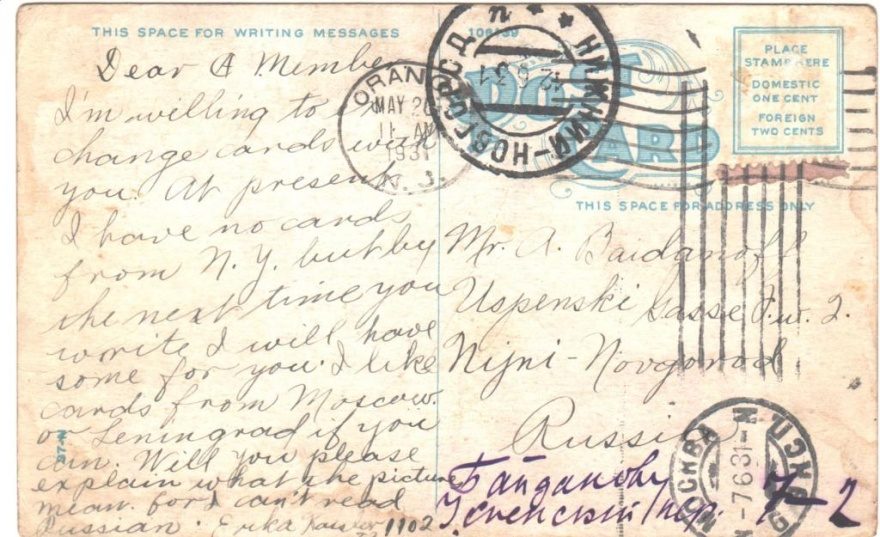 THIS SPACE FOR WRITING MESSAGES
106139
Dear A Member
I'm willing to ex
change cards with
you. At present
I have no cards
from N.Y. but by
the next time you
write I will have
some for you. I like
cards from Moscow
or Leningrad if you
can. Will you please
explain what the picture
mean. for I can't read
Russian. Erika
1102
37-N
ORANGE
MAY 20
11 AM
1931
N.J.
НИЖНИЙ-НОВГОРОД
POST
CARD
PLACE
STAMP HERE
DOMESTIC
ONE CENT
FOREIGN
TWO CENTS
THIS SPACE FOR ADDRESS ONLY
Mr. A. Baidanoff
Uspenski Gasse 7. w. 2.
Nijni-Novgorod
Russia
Байданову
Успенский пер. 7-2
МОСКВА
7631